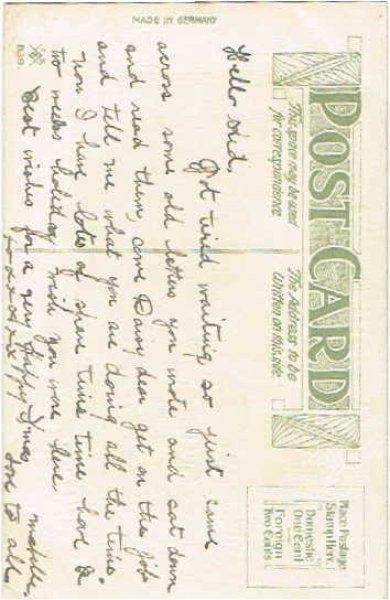 POST CARD
This space may be used
for correspondence
The Address to be
Written on this side
Place Postage
Stamp Here
Domestic
One Cent
Foreign
Two Cents
MADE IN GERMANY
Hello Kid,
Got tired waiting so just came
across some old letters you wrote and sat down
and read them, come Daisy dear get on the job
and tell me what you are doing all the time.
Now I have lots of spare time time have a
two weeks holiday wish you were here
Best wishes for a very happy Xmas
love to all